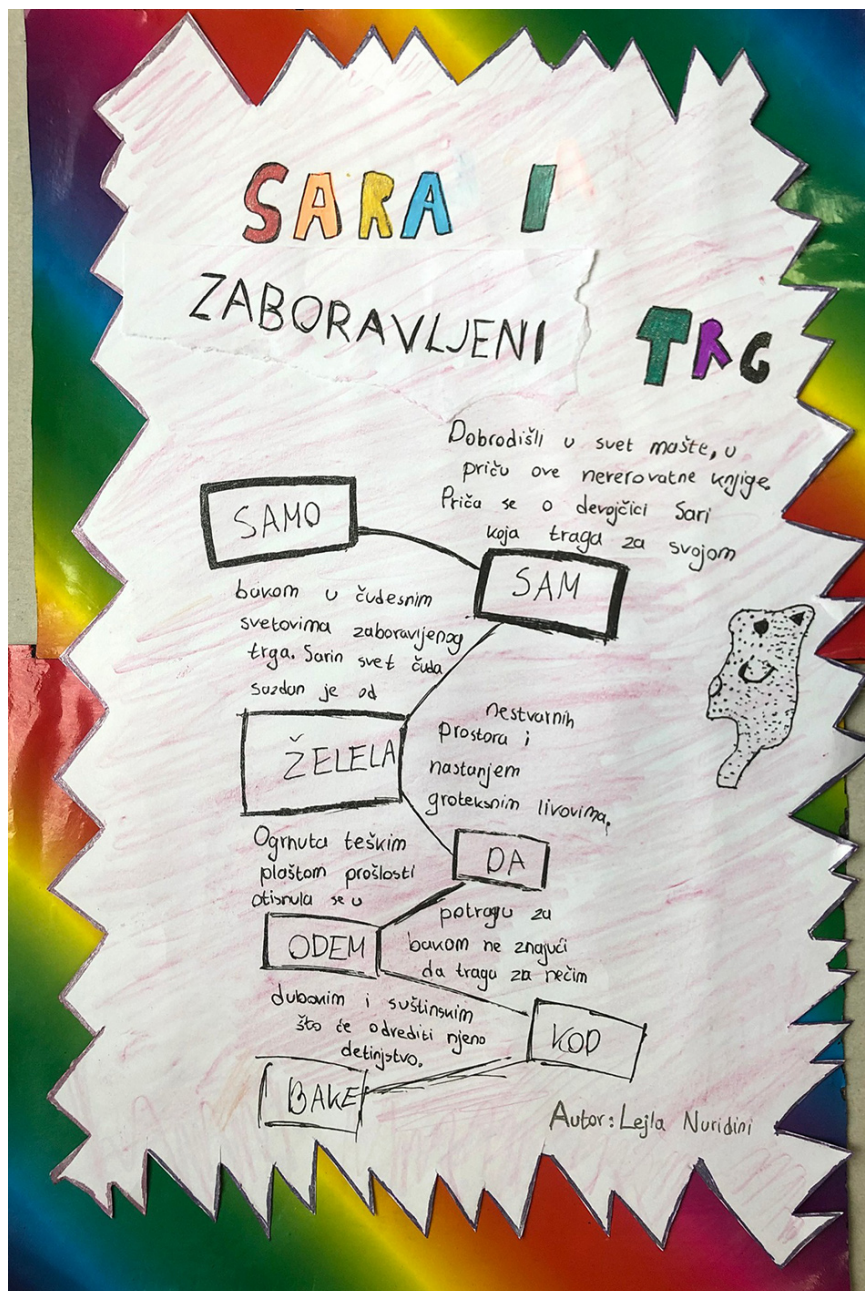 SARA I
ZABORAVLJENI TRG
Dobrodišli u svet mašte, u
priču ove nererovatne knjige.
Priča se o devojčici Sari
koja traga za svojom
SAMO
SAM
bakom u čudesnim
svetovima zaboravljenog
trga. Sarin svet čuda
sazdan je od
ŽELELA
nestvarnih
prostora i
nastanjem
groteksnim livovima.
Ogrnuta teškim
plaštom prošlosti
otisnula se u
DA
potragu za
bakom ne znajući
da traga za nečim
ODEM
dubokim i suštinskim
što će odrediti njeno
detinjstvo.
KOD
BAKE
Autor: Lejla Nuridini